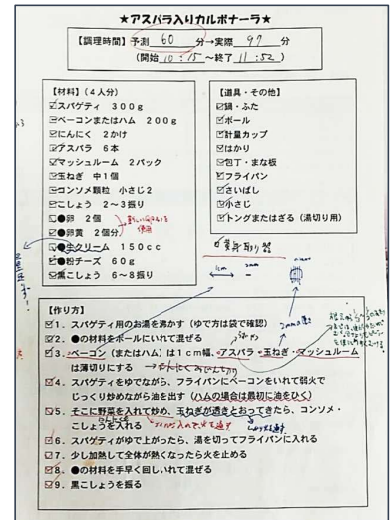 ★アスパラ入りカルボナーラ★
【調理時間】予測 60 分→実際 97 分
(開始 10:15 ~終了 11:52)
【材料】(4人分)
☑スパゲティ 300g
☑ベーコンまたはハム 200g
☑にんにく 2かけ
☑アスパラ 6本
☑マッシュルーム 2パック
☑玉ねぎ 中1個
☑コンソメ顆粒 小さじ2
☑こしょう 2~3振り
☑●卵 2個
☑●卵黄 2個分
☑●生クリーム 150cc
☑●粉チーズ 60g
☑黒こしょう 6~8振り
【道具・その他】
☑鍋・ふた
☑ボール
☑計量カップ
☑はかり
☑包丁・まな板
☑フライパン
☑さいばし
☑小さじ
☑トングまたはざる(湯切り用)
黄身取り器
1cm 2mm
【作り方】
☑1.スパゲティ用のお湯を沸かす(ゆで方は袋で確認)
☑2.●の材料をボールにいれて混ぜる
☑3.ベーコン(またはハム)は1cm幅、アスパラ・玉ねぎ・マッシュルーム
は薄切りにする
2mmの
☑4.スパゲティをゆでながら、フライパンにベーコンをいれて弱火で
じっくり炒めながら油を出す(ハムの場合は最初に油をひく)
☑5.そこに野菜を入れて炒め、玉ねぎが透きとおってきたら、コンソメ・
こしょうを入れる
☑6.スパゲティがゆで上がったら、湯を切ってフライパンに入れる
☑7.少し加熱して全体が熱くなったら火を止める
☑8.●の材料を手早く回しいれて混ぜる
☑9.黒こしょうを振る